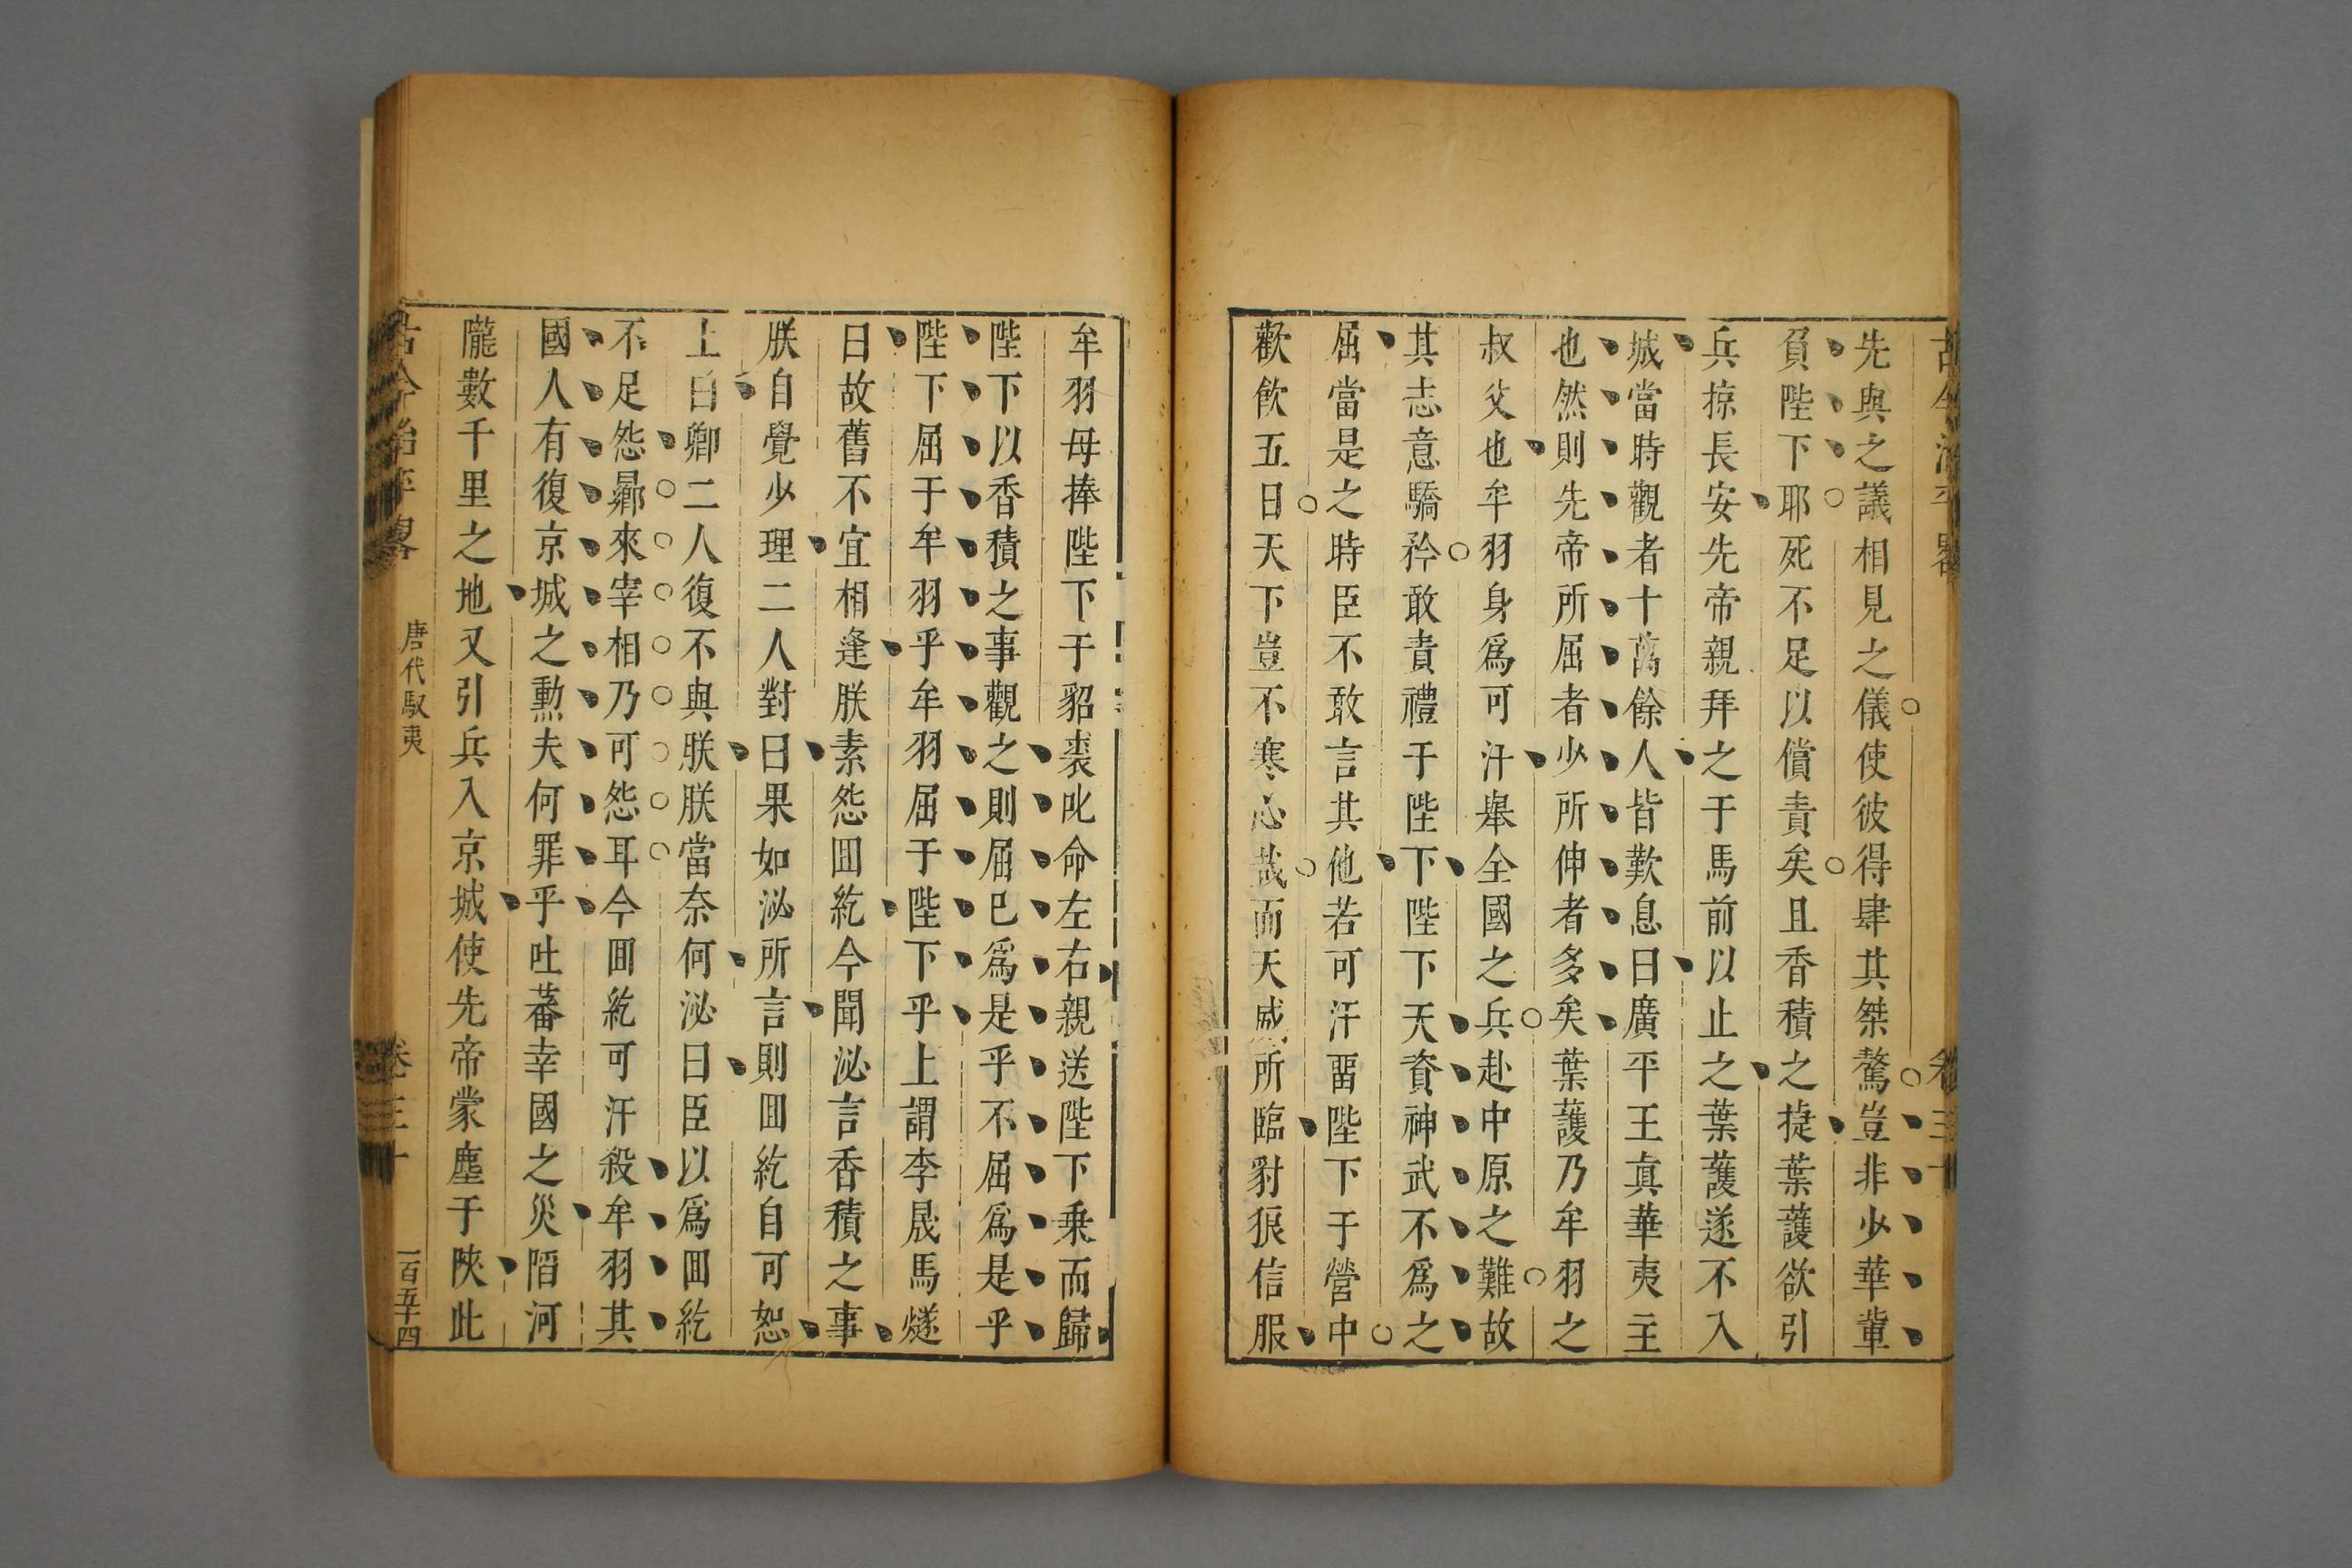 古今治平畧
卷三十
先與之議相見之儀使彼得肆其桀驁豈非少華輩
負陛下耶死不足以償責矣且香積之捷葉護欲引
兵掠長安先帝親拜之于馬前以止之葉護遂不入
城當時觀者十萬餘人皆歎息曰廣平王真華夷主
也然則先帝所屈者少所伸者多矣葉護乃牟羽之
叔父也牟羽身爲可汗舉全國之兵赴中原之難故
其志意驕矜敢責禮于陛下陛下天資神武不爲之
屈當是之時臣不敢言其他若可汗畱陛下于營中
歡飲五日天下豈不寒心哉而天威所臨豺狼信服
牟羽母捧陛下于貂裘叱命左右親送陛下乗而歸
陛下以香積之事觀之則屈巳爲是乎不屈爲是乎
陛下屈于牟羽乎牟羽屈于陛下乎上謂李晟馬燧
曰故舊不宜相逢朕素怨囬紇今聞泌言香積之事
朕自覺少理二人對曰果如泌所言則囬紇自可恕
上曰卿二人復不與朕朕當奈何泌曰臣以爲囬紇
不足怨曏來宰相乃可怨耳今囬紇可汗殺牟羽其
國人有復京城之勲夫何罪乎吐蕃幸國之災陷河
隴數千里之地又引兵入京城使先帝蒙塵于陝此
古今治平畧
唐代馭夷
卷三十
一百五十四